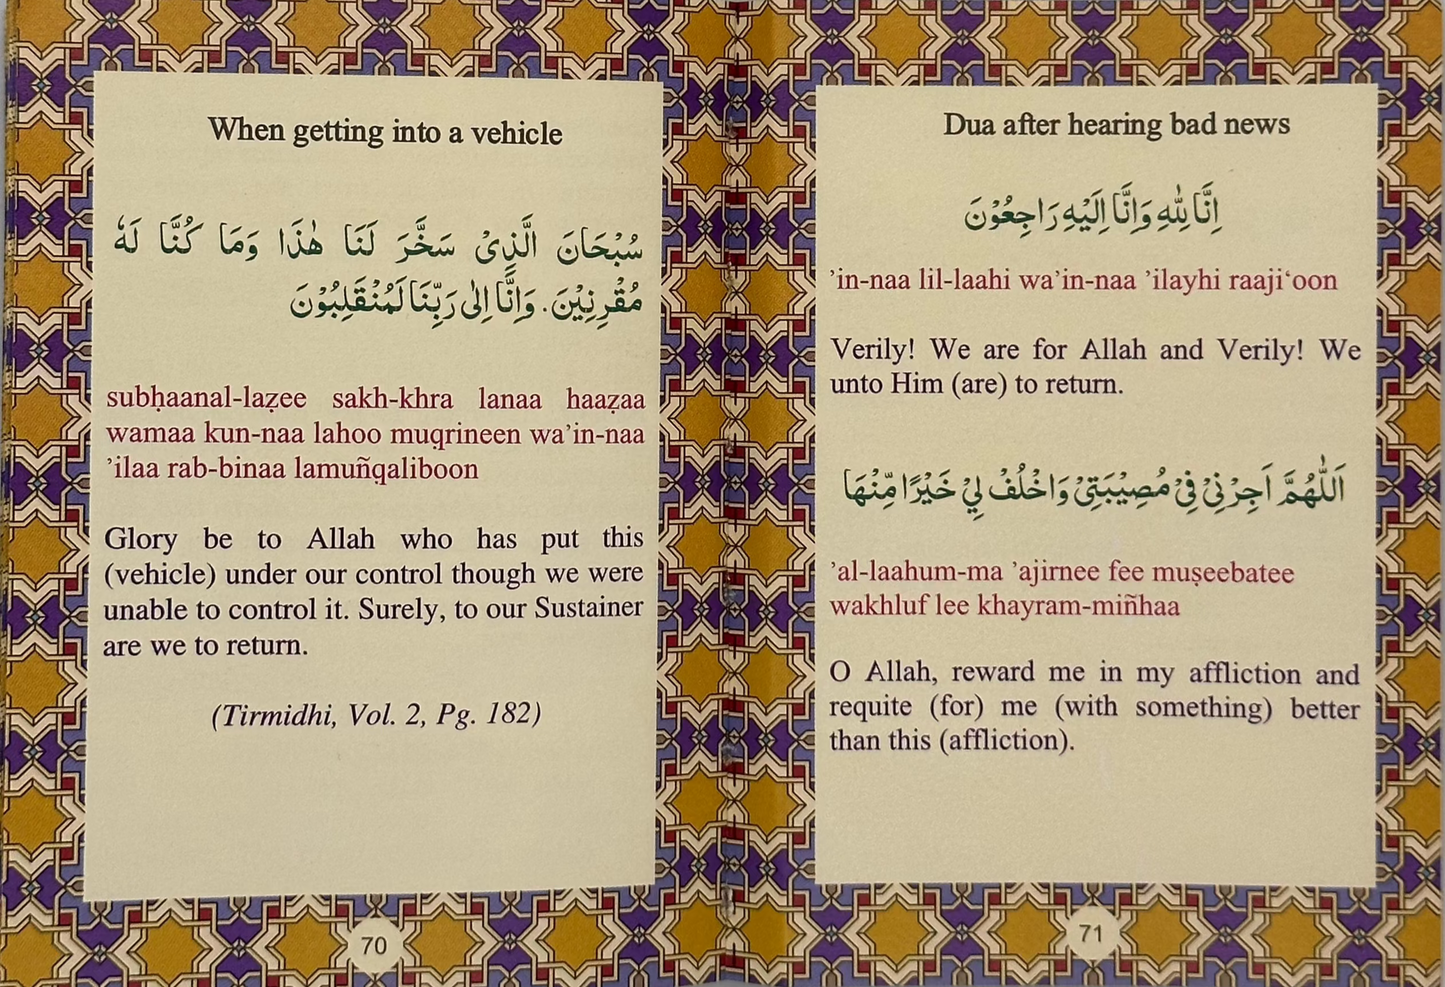 When getting into a vehicle
سُبْحَانَ الَّذِیْ سَخَّرَ لَنَا هٰذَا وَمَا كُنَّا لَهٗ
مُقْرِنِيْنَ. وَاِنَّا اِلٰى رَبِّنَا لَمُنْقَلِبُوْنَ
subḥaanal-laẓee sakh-khra lanaa haaẓaa
wamaa kun-naa lahoo muqrineen wa’in-naa
’ilaa rab-binaa lamuñqaliboon
Glory be to Allah who has put this
(vehicle) under our control though we were
unable to control it. Surely, to our Sustainer
are we to return.
(Tirmidhi, Vol. 2, Pg. 182)
70
Dua after hearing bad news
اِنَّا لِلّٰهِ وَاِنَّا اِلَيْهِ رَاجِعُوْنَ
’in-naa lil-laahi wa’in-naa ’ilayhi raaji‘oon
Verily! We are for Allah and Verily! We
unto Him (are) to return.
اَللّٰهُمَّ اَجِرْنِیْ فِیْ مُصِيْبَتِیْ وَاخْلُفْ لِيْ خَيْرًا مِّنْهَا
’al-laahum-ma ’ajirnee fee muṣeebatee
wakhluf lee khayram-miñhaa
O Allah, reward me in my affliction and
requite (for) me (with something) better
than this (affliction).
71